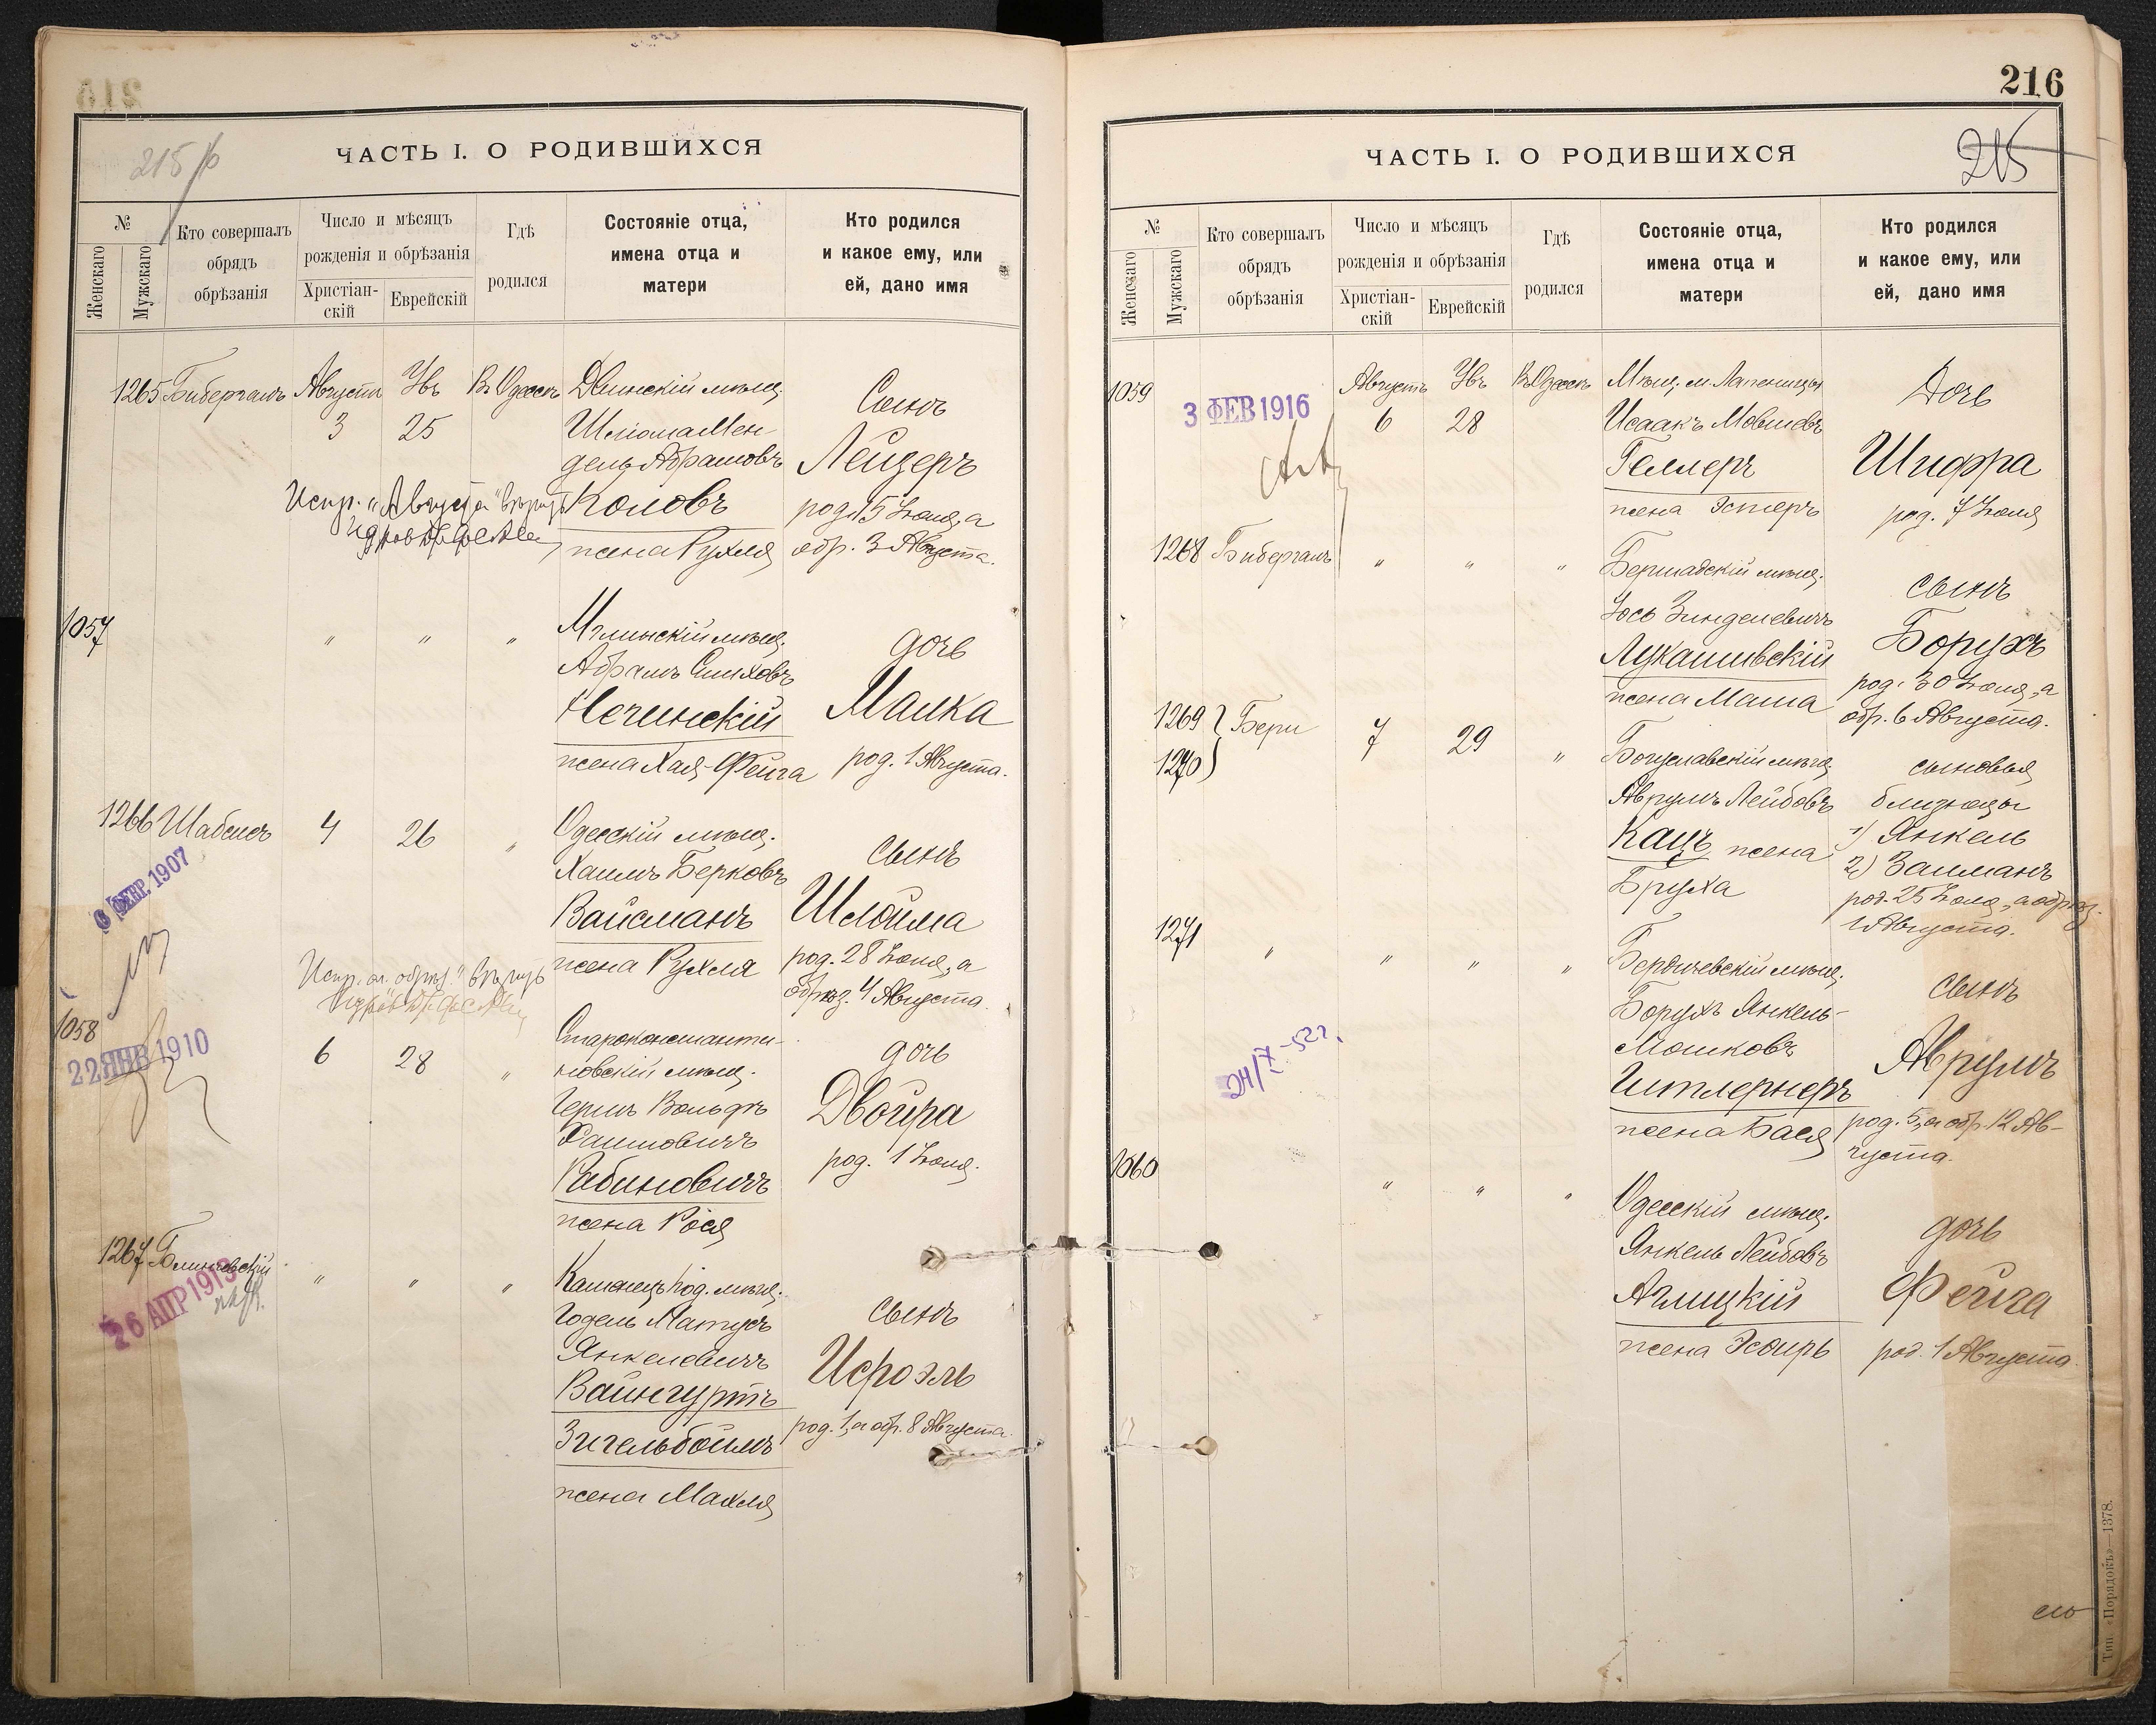 215 об
ЧАСТЬ I. О РОДИВШИХСЯ
№
Женскаго
Мужскаго
Кто совершалъ
обрядъ
обрѣзанія
Число и мѣсяцъ
рожденія и обрѣзанія
Христіан-
скій
Еврейскій
Гдѣ
родился
Состояніе отца,
имена отца и
матери
Кто родился
и какое ему, или
ей, дано имя
1265 Бибергалъ Августа Овъ Въ Одессѣ Двинскій мѣщ.
3 25
Шліома Мен-
дель Абрамовъ
Коловъ
жена Рухля
Сынъ
Лейзеръ
род. 15 Іюля, а
обр. 3 Августа.
Испр. „Августа“ вѣрно
1057 " " " Мглинскій мѣщ.
Абрамъ Симховъ
Нечинскій
жена Хая-Фейга
дочь
Малка
род. 1 Августа.
1266 Шабсисъ 4 26 " Одесскій мѣщ.
Хаимъ Берковъ
Вайсманъ
жена Рухля
сынъ
Шлойма
род. 28 Іюля, а
обрѣз. 4 Августа.
6 ФЕВР. 1907
Испр. сл. „обрѣз.“ вѣрно
1058
22 ЯНВ 1910
6 28 " Староконстанти-
новскій мѣщ.
Гершъ Вольфъ
Хаимовичъ
Рабиновичъ
жена Рося
дочь
Двойра
род. 1 Іюля.
1267 Блиневскій " " " Каменецъ Под. мѣщ.
26 АПР 1913
Годель Матусъ
Янкелевичъ
Вайнгуртъ
Зигельбоимъ
жена Махля
сынъ
Исроэль
род. 1, а обр. 8 Августа.
216
215
ЧАСТЬ I. О РОДИВШИХСЯ
№
Женскаго
Мужскаго
Кто совершалъ
обрядъ
обрѣзанія
Число и мѣсяцъ
рожденія и обрѣзанія
Христіан-
скій
Еврейскій
Гдѣ
родился
Состояніе отца,
имена отца и
матери
Кто родился
и какое ему, или
ей, дано имя
1059 Августъ Овъ Въ Одессѣ Мѣщ. м. Лапеницы
3 ФЕВ 1916
6 28
Исаакъ Мовшовъ
Геллеръ
жена Эстеръ
Дочь
Шифра
род. 7 Іюля
1268 Бибергалъ " " " Бершадскій мѣщ.
Іось Зинделевичъ
Лукашивскій
жена Маша
сынъ
Борухъ
род. 30 Іюля, а
обр. 6 Августа.
1269
1270
Бери 7 29 " Богуславскій мѣщ.
Аврумъ Лейбовъ
Кацъ жена
Бруха
сыновья
близнецы
1) Янкель
2) Залманъ
род. 25 Іюля, а обрѣз.
1 Августа.
1271 " " " " Бердичевскій мѣщ.
Борухъ Янкель-
Мошковъ
Гитлернеръ
жена Бася
сынъ
Аврумъ
род. 5, а обр. 12 Ав-
густа.
24/X-52 г.
1060 " " " Одесскій мѣщ.
Янкель Лейбовъ
Аглицкій
жена Эсфирь
дочь
Фейга
род. 1 Августа.
Тип. «Порядокъ»—1378.